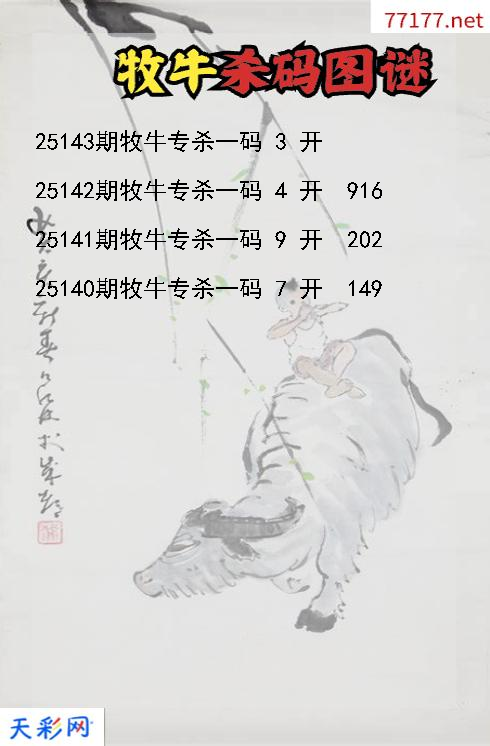 77177.net
牧牛杀码图谜
25143期牧牛专杀一码 3 开
25142期牧牛专杀一码 4 开 916
25141期牧牛专杀一码 9 开 202
25140期牧牛专杀一码 7 开 149
天彩网